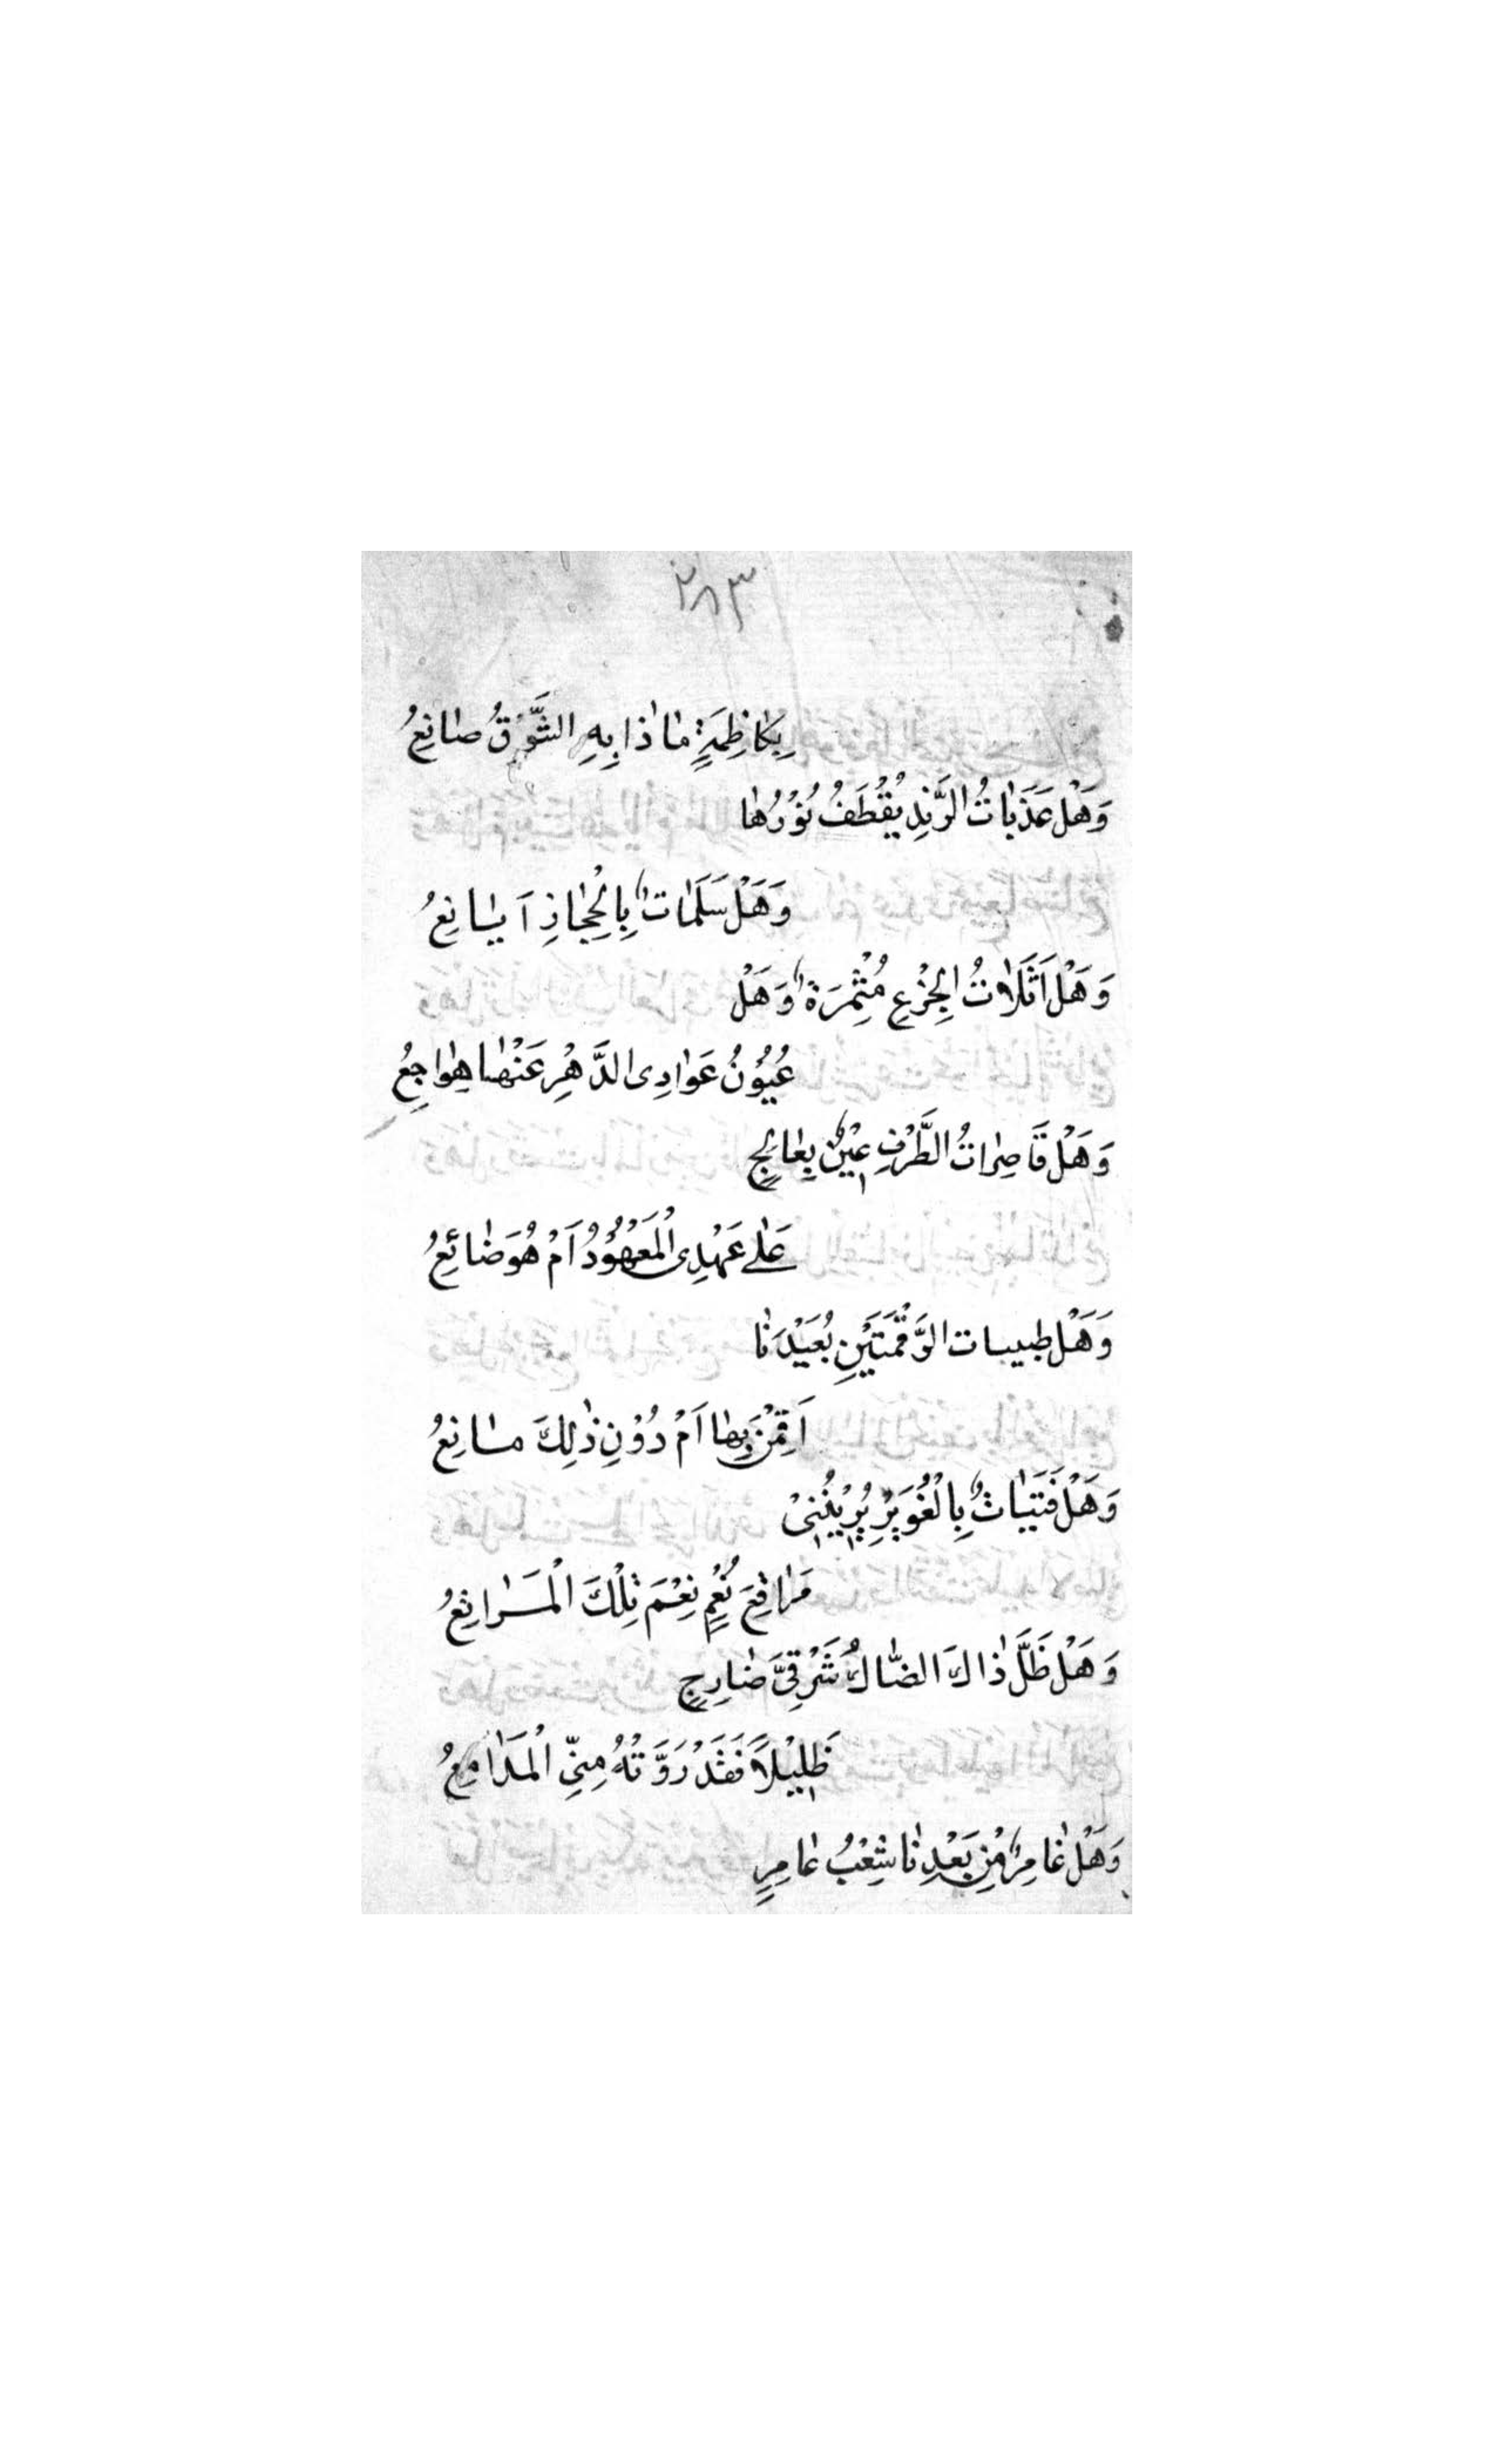 ٢٨٣
بِكَاظِمَةٍ مَاذَا بِهِ الشَّوْقُ صَانِعُ
وَهَلْ عَذَبَاتُ الرَّنْدِ يُقْطَفُ نُوْرُهَا
وَهَلْ سَلَمَاتٌ بِالْحِجَازِ اَيَانِعُ
وَهَلْ اَثَلَاتُ الجِزْعِ مُثْمِرَةٌ وَهَلْ
عُيُوْنُ عَوَادِى الدَّهْرِ عَنْهَا هَوَاجِعُ
وَهَلْ قَاصِرَاتُ الطَّرْفِ عِيْنٌ بِعَالِجٍ
عَلٰے عَهْدِى الْمَعْهُوْدُ اَمْ هُوَ ضَائِعُ
وَهَلْ طبيبات الرَّقْمَتَيْنِ بُعَيْدَنَا
اَقِمْنَ بِهَا اَمْ دُوْنِ ذٰلِكَ مَانِعُ
وَهَلْ فَتَيَاتٌ بِالْغُوَيْرِ يُرِيْنُنِىْ
مَرَاقِعَ نُعْمٍ نِعْمَ تِلْكَ الْمَرَاتِعُ
وَهَلْ ظَلَّ ذَاكَ الضَّالُ شَرْقِىَّ ضَارِجٍ
ظَلِيْلًا فَقَدْ رَوَّتْهُ مِنِّى الْمَدَامِعُ
وَهَلْ عَامِرٌ مِنْ بَعْدِنَا شِعْبُ عَامِرٍ